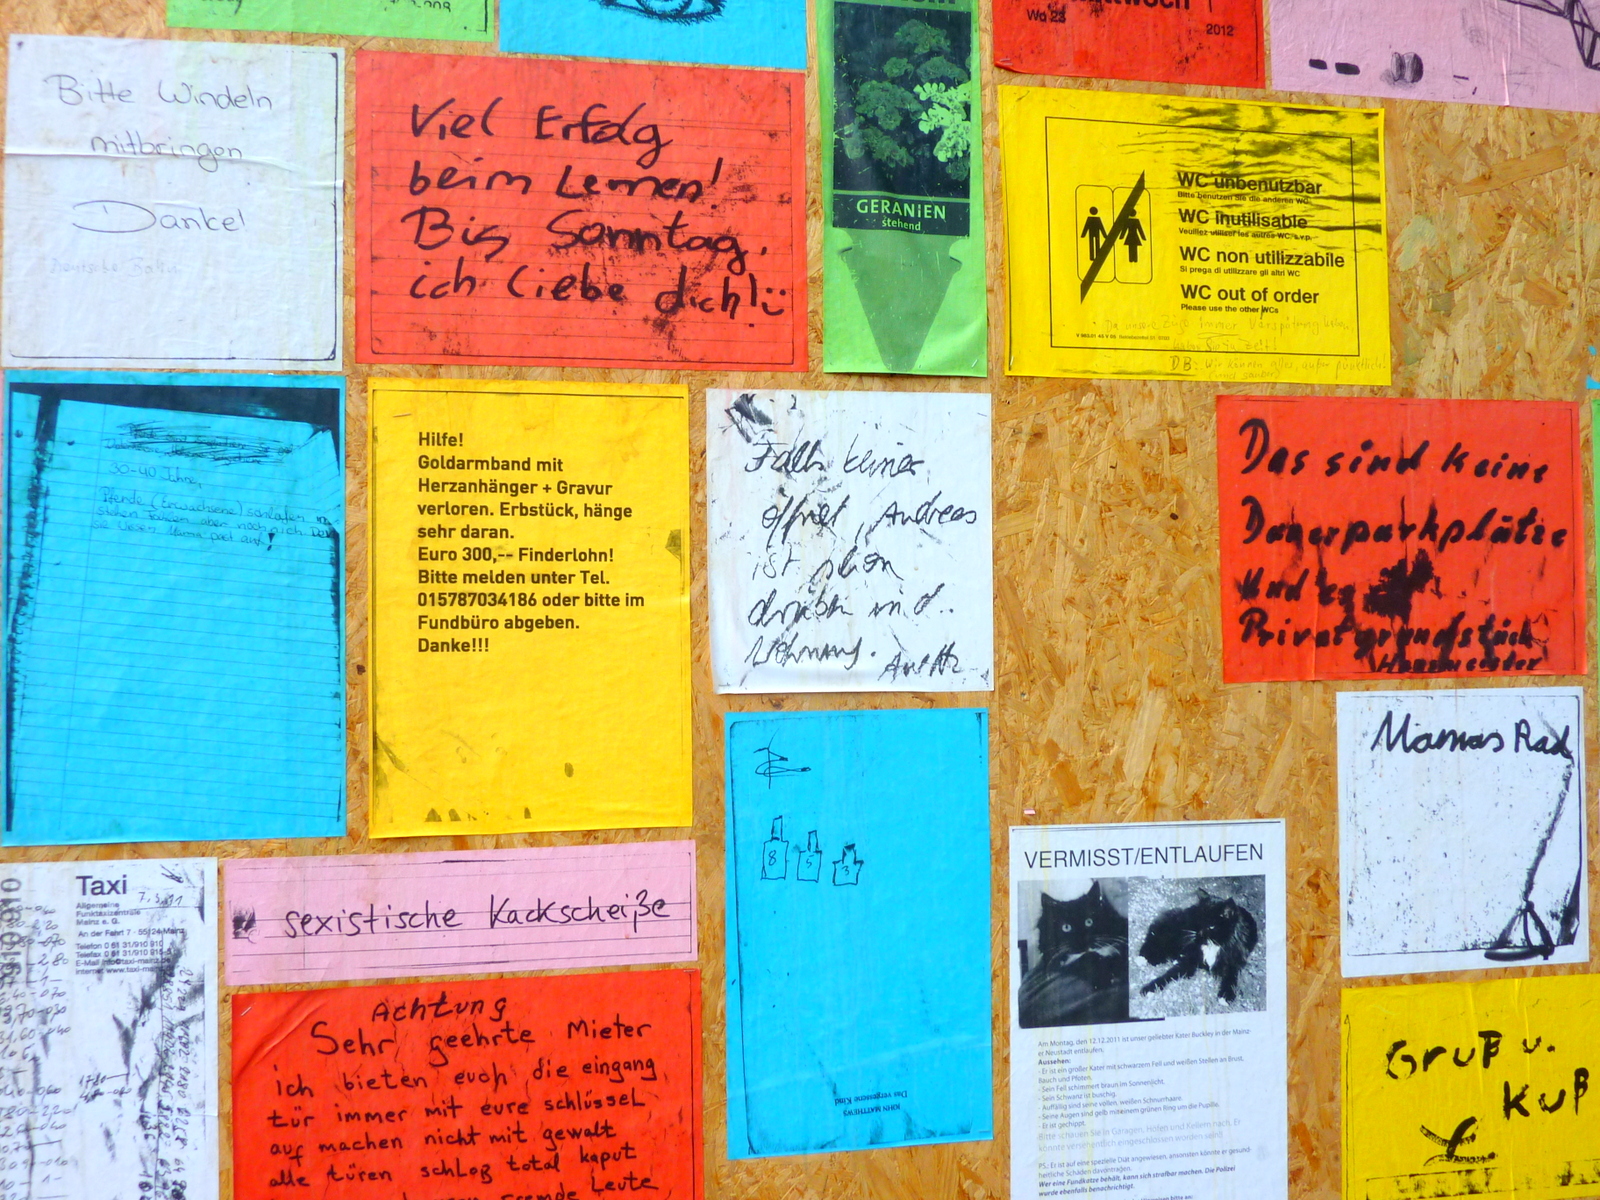 Mittwoch
Wo 23
2012
Bitte Windeln
mitbringen
Danke!
Viel Erfolg
beim Lernen!
Bis Sonntag,
ich liebe dich!
GERANiEN
stehend
WC unbenutzbar
Bitte benutzen Sie die anderen WC
WC inutilisable
Veuillez utiliser les autres WC, s.v.p.
WC non utilizzabile
Si prega di utilizzare gli altri WC
WC out of order
Please use the other WCs
Da unsere Züge immer Verspätung haben,
DB: Wir können alles, außer pünktlich
30-40 Jahre,
Pferde (Erwachsene) schlafen im
stehen
Hilfe!
Goldarmband mit
Herzanhänger + Gravur
verloren. Erbstück, hänge
sehr daran.
Euro 300,-- Finderlohn!
Bitte melden unter Tel.
015787034186 oder bitte im
Fundbüro abgeben.
Danke!!!
Falls keiner
öffnet, Andreas
ist schon
drüben in d.
Wohnung.
Das sind keine
Dauerparkplätze
und
Privatgrundstück
Hausmeister
Mamas Rad
8
5
3
JOHN MATTHEWS
Das vergessene Kind
VERMISST/ENTLAUFEN
Am Montag, den 12.12.2011 ist unser geliebter Kater Buckley in der Mainz-
er Neustadt entlaufen.
Aussehen:
- Er ist ein großer Kater mit schwarzem Fell und weißen Stellen an Brust,
Bauch und Pfoten.
- Sein Fell schimmert braun im Sonnenlicht.
- Sein Schwanz ist buschig.
- Auffällig sind seine vollen, weißen Schnurrhaare.
- Seine Augen sind gelb mit einem grünen Ring um die Pupille.
- Er ist gechippt.
Bitte schauen Sie in Garagen, Höfen und Kellern nach. Er
könnte versehentlich eingeschlossen worden sein!
PS.: Er ist auf eine spezielle Diät angewiesen, ansonsten könnte er gesund-
heitliche Schäden davontragen.
Wer eine Fundkatze behält, kann sich strafbar machen. Die Polizei
wurde ebenfalls benachrichtigt.
Gruß u.
Kuß
Taxi
7.3.11
Allgemeine
Funktaxizentrale
Mainz e. G.
An der Fahrt 7 · 55124 Mainz
Telefon 0 61 31/910 910
Telefax 0 61 31/910 915
sexistische Kackscheiße
Achtung
Sehr geehrte Mieter
ich bieten euch die eingang
tür immer mit eure schlüssel
auf machen nicht mit gewalt
alle türen schloß total kaput
fremde Leute